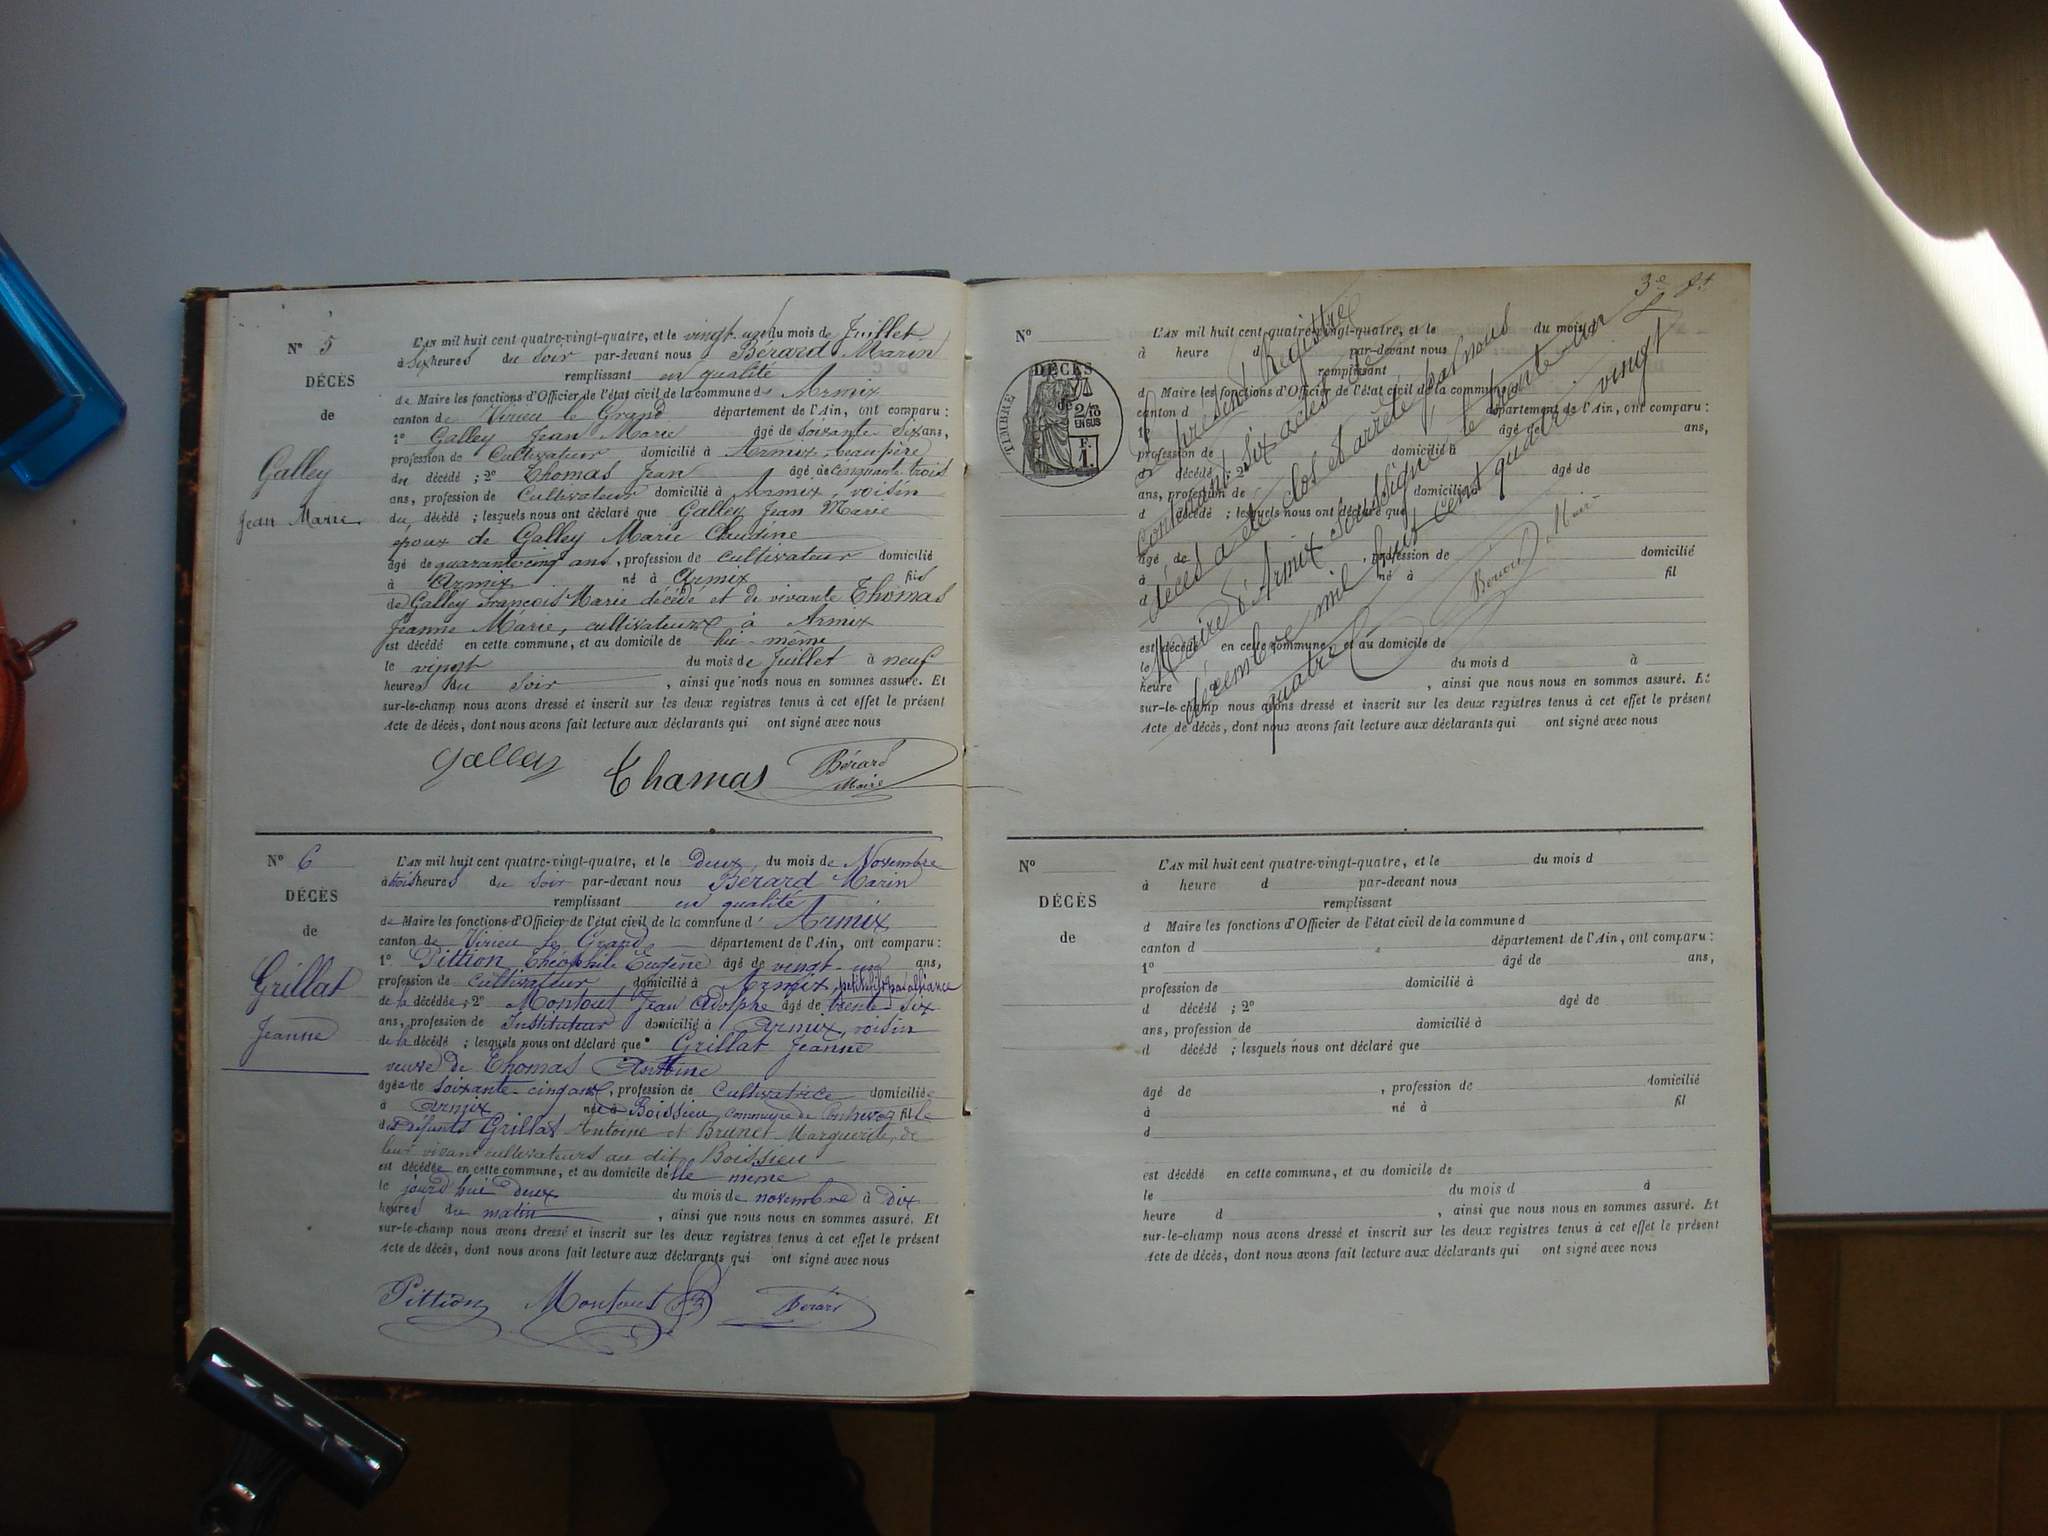 N° 5
DÉCÈS
de
Galley
Jean Marie
L'AN mil huit cent quatre-vingt-quatre, et le vingt-une du mois de Juillet
à six heures du soir par-devant nous Bérard Marin
remplissant en qualité
de Maire les fonctions d'Officier de l'état civil de la commune de Armix
canton de Virieu le Grand département de l'Ain, ont comparu :
1° Galley Jean Marie âgé de soixante dix ans,
profession de Cultivateur domicilié à Armix, beau père
du décédé ; 2° Thomas Jean âgé de cinquante trois
ans, profession de Cultivateur domicilié à Armix, voisin
du décédé ; lesquels nous ont déclaré que Galley Jean Marie
époux de Galley Marie Claudine
âgé de quarante cinq ans, profession de cultivateur domicilié
à Armix né à Armix fils
de Galley François Marie décédé et de vivante Thomas
Jeanne Marie, cultivateurs à Armix
est décédé en cette commune, et au domicile de lui-même
le vingt du mois de Juillet à neuf
heures du soir, ainsi que nous nous en sommes assuré. Et
sur-le-champ nous avons dressé et inscrit sur les deux registres tenus à cet effet le présent
Acte de décès, dont nous avons fait lecture aux déclarants qui ont signé avec nous
Galley Thamas Bérard
Maire
N° 6
DÉCÈS
de
Grillat
Jeanne
L'AN mil huit cent quatre-vingt-quatre, et le deux du mois de Novembre
à trois heures du soir par-devant nous Bérard Marin
remplissant en qualité
de Maire les fonctions d'Officier de l'état civil de la commune d' Armix
canton de Virieu le Grand département de l'Ain, ont comparu :
1° Pittion Théophile Eugène âgé de vingt-un ans,
profession de cultivateur domicilié à Armix, petit fils par alliance
de la décédée ; 2° Montout Jean Adolphe âgé de trente-six
ans, profession de Instituteur domicilié à Armix, voisin
de la décédé ; lesquels nous ont déclaré que Grillat Jeanne
veuve de Thomas Antoine
âgée de soixante-cinq ans, profession de Cultivatrice domiciliée
à Armix née à Boissieu, commune de Contrevoz fille
de défunts Grillat Antoine et Brunet Marguerite, de
leur vivant cultivateurs au dit Boissieu
est décédée en cette commune, et au domicile d'elle même
le jourd'hui deux du mois de novembre à dix
heures du matin, ainsi que nous nous en sommes assuré. Et
sur-le-champ nous avons dressé et inscrit sur les deux registres tenus à cet effet le présent
Acte de décès, dont nous avons fait lecture aux déclarants qui ont signé avec nous
Pittion Montout Bérard
3e ft
N°
TIMBRE
DÉCÈS
de
2/10
EN SUS
F.
1.
L'AN mil huit cent quatre-vingt-quatre, et le du mois d
à heure d par-devant nous
remplissant
d Maire les fonctions d'Officier de l'état civil de la commune d
canton d département de l'Ain, ont comparu :
1° âgé de ans,
profession de domicilié à
d décédé ; 2° âgé de
ans, profession de domicilié à
d décédé ; lesquels nous ont déclaré que
âgé de , profession de domicilié
à né à fil
d
est décédé en cette commune, et au domicile de
le du mois d à
heure , ainsi que nous nous en sommes assuré. Et
sur-le-champ nous avons dressé et inscrit sur les deux registres tenus à cet effet le présent
Acte de décès, dont nous avons fait lecture aux déclarants qui ont signé avec nous
Le présent Registre
contenant six actes de
décès a été clos et arrêté par nous
Maire d'Armix soussigné le trente-un
décembre mil huit cent quatre vingt
quatre
Bérard Maire
N°
DÉCÈS
de
L'AN mil huit cent quatre-vingt-quatre, et le du mois d
à heure d par-devant nous
remplissant
d Maire les fonctions d'Officier de l'état civil de la commune d
canton d département de l'Ain, ont comparu :
1° âgé de ans,
profession de domicilié à
d décédé ; 2° âgé de
ans, profession de domicilié à
d décédé ; lesquels nous ont déclaré que
âgé de , profession de domicilié
à né à fil
d
est décédé en cette commune, et au domicile de
le du mois d à
heure d , ainsi que nous nous en sommes assuré. Et
sur-le-champ nous avons dressé et inscrit sur les deux registres tenus à cet effet le présent
Acte de décès, dont nous avons fait lecture aux déclarants qui ont signé avec nous